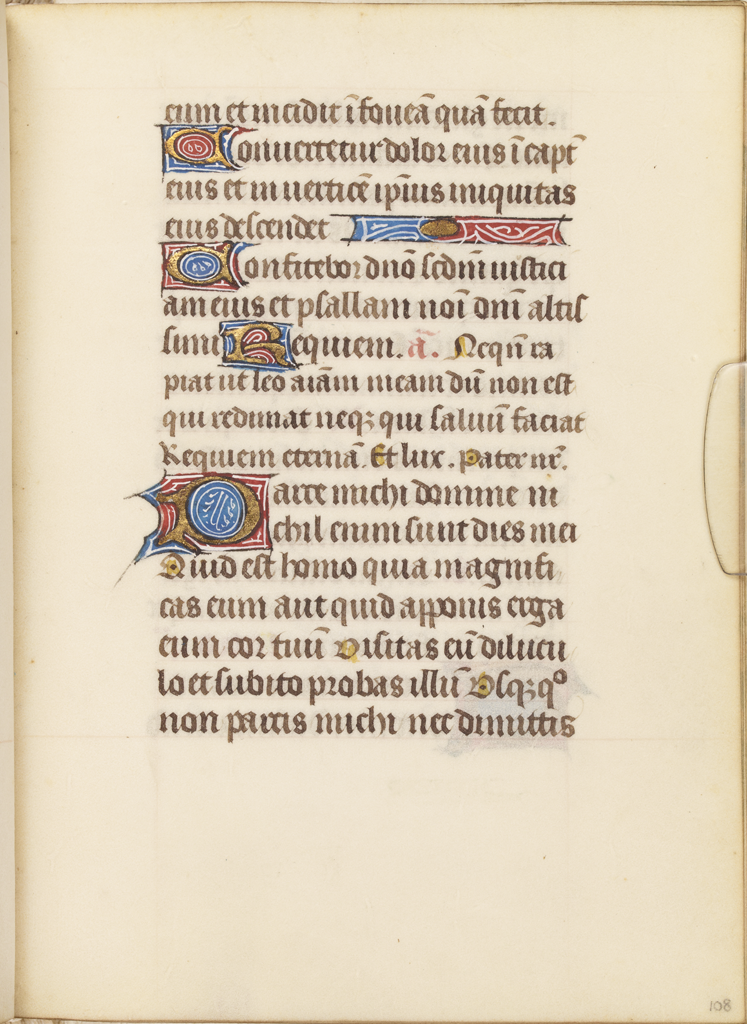 eum et incidit ī foueā quā fecit.
Conuertetur dolor eius ī capt̄
eius et in uerticē ip̄ius iniquitas
eius descendet
Confitebor dn̄o scdm̄ iustici
am eius et psallam noī dn̄i altis
simi Requiem. a. Nequn̄ ra
piat ut leo aīam meam dū non est
qui redimat neqꝫ qui saluū faciat
Requiem eternā. Et lux. Pater nr̄.
Parce michi domine ni
chil enim sunt dies mei
Quid est homo quia magnifi
cas eum aut quid apponis erga
eum cor tuū Uisitas eū dilucu
lo et subito probas illū Usqꝫqº
non parcis michi nec dimittis
108